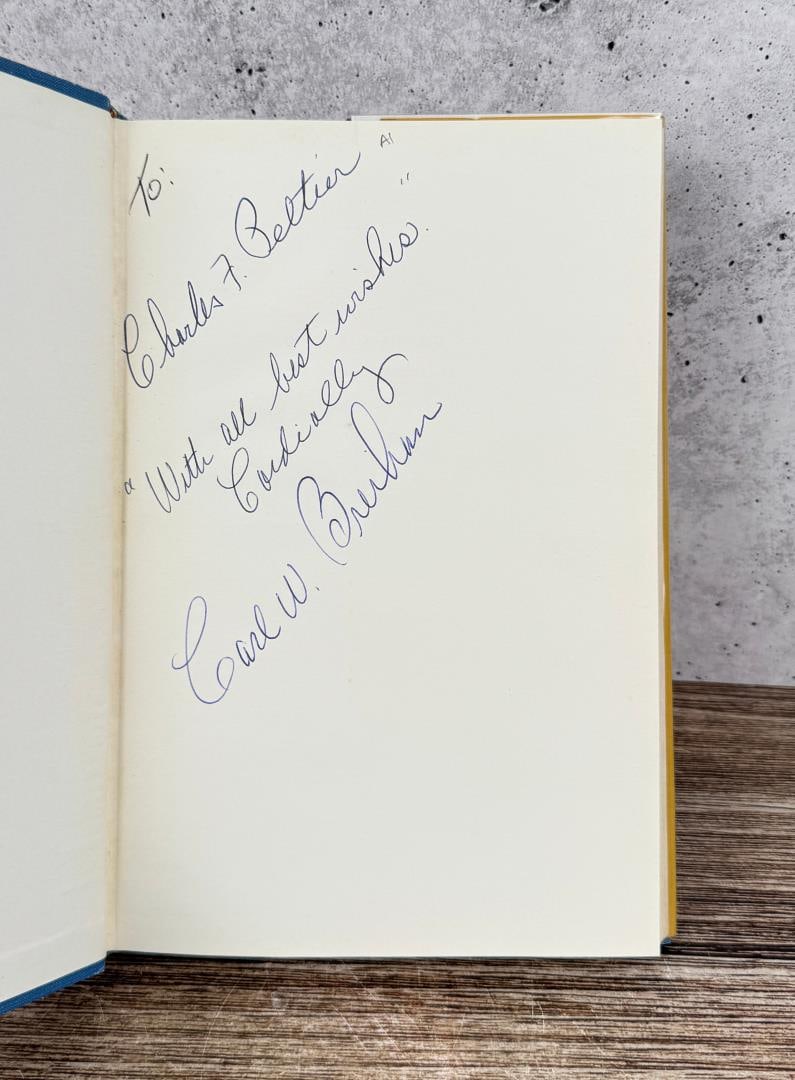 To:
A1
Charles F. Beltier
"With all best wishes."
Cordially
Carl W. Breihan